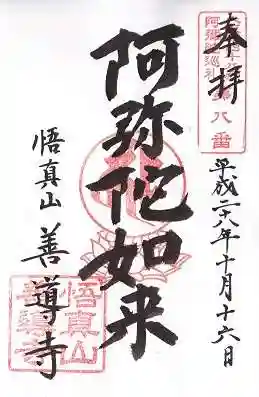 奉拝
第八番
平成二十八年十月十六日
阿弥陀如来
悟真山 善導寺
悟真山
善導寺